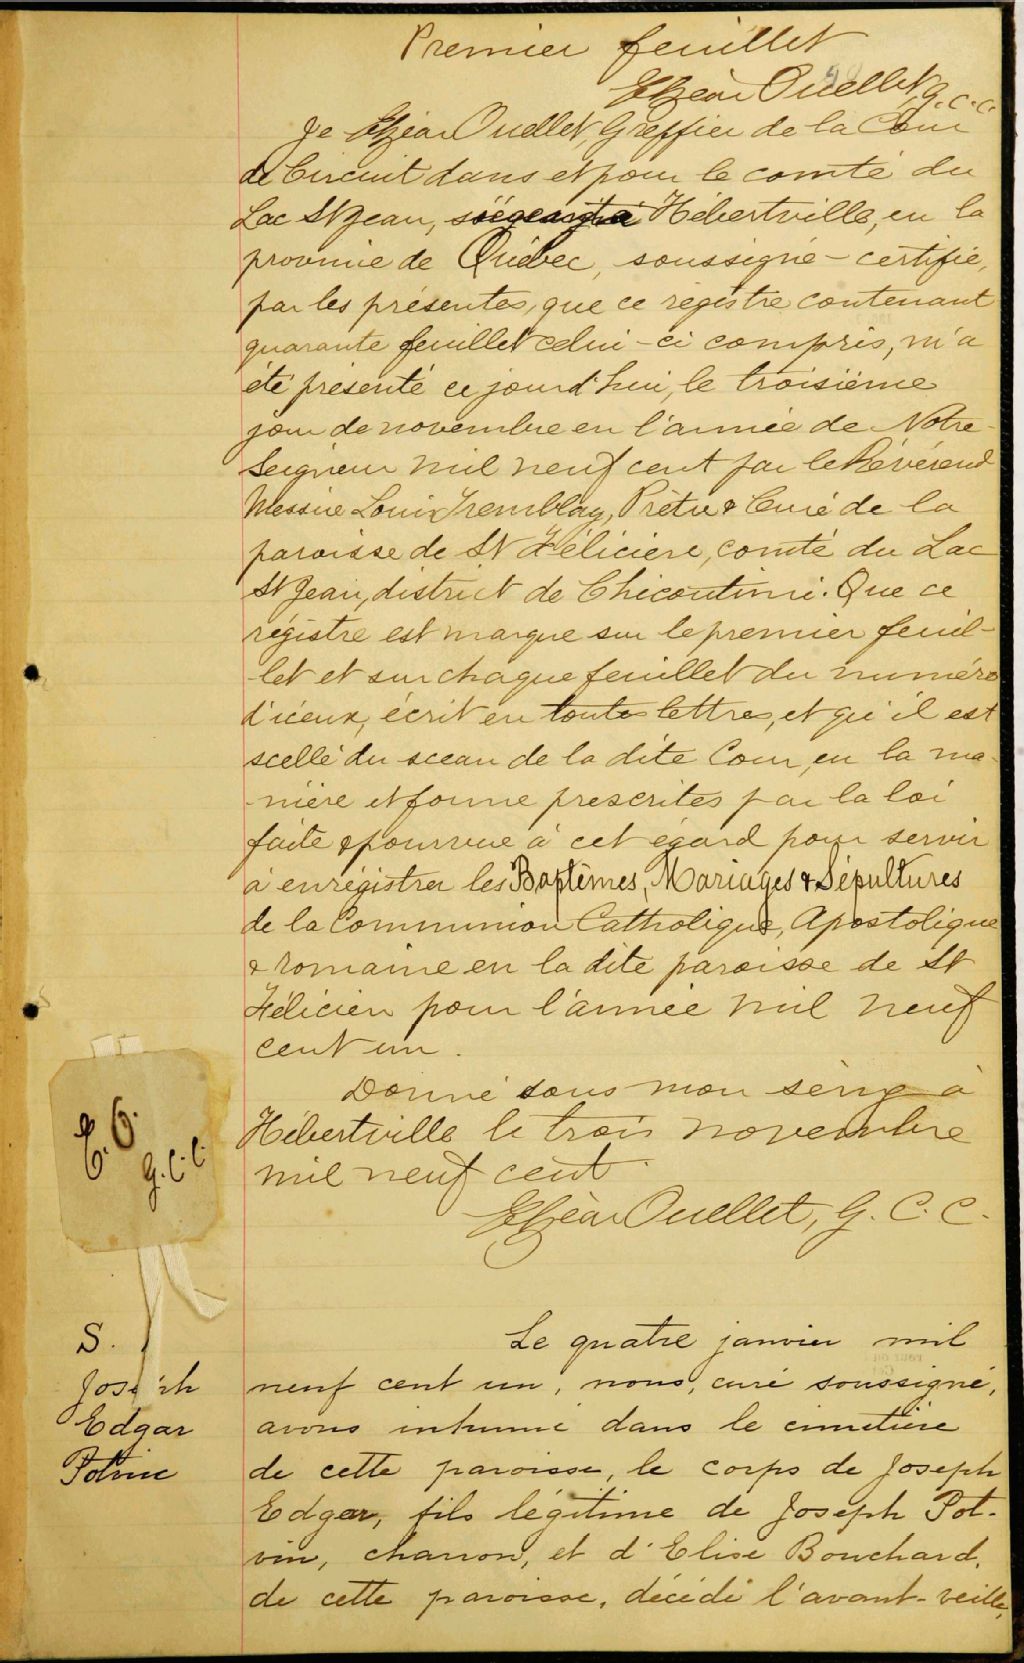 Premier feuillet
Elzéar Ouellet, g. c. c.
Je Elzéar Ouellet, Greffier de la Cour
de Circuit dans et pour le comté du
Lac St Jean, siégeant à Hébertville, en la
province de Québec, soussigné - certifie,
par les présentes, que ce régistre contenant
quarante feuillet celui-ci compris, m'a
été présenté ce jourd'hui, le troisième
jour de novembre en l'année de Notre
Seigneur mil neuf cent par le Révérend
Messire Louis Tremblay, Prêtre & Curé de la
paroisse de St Félicien, comté du Lac
St Jean, district de Chicoutimi. Que ce
régistre est marqué sur le premier feuil-
let et sur chaque feuillet du numéro
d'iceux, écrit en toutes lettres, et qu'il est
scellé du sceau de la dite Cour, en la ma-
nière et forme prescrites par la loi
faite & pourvue à cet égard pour servir
à enrégistrer les Baptêmes, Mariages & Sépultures
de la Communion Catholique, Apostolique
& romaine en la dite paroisse de St
Félicien pour l'année mil neuf
cent un.
Donné sous mon seing à
Hébertville le trois novembre
mil neuf cent.
Elzéar Ouellet, G. C. C.
E. O.
g. c. c.
S.
Joseph
Edgar
Potvin
Le quatre janvier mil
neuf cent un, nous, curé soussigné,
avons inhumé dans le cimetière
de cette paroisse, le corps de Joseph
Edgar, fils légitime de Joseph Pot-
vin, charron, et d'Elise Bouchard,
de cette paroisse, décédé l'avant-veille,